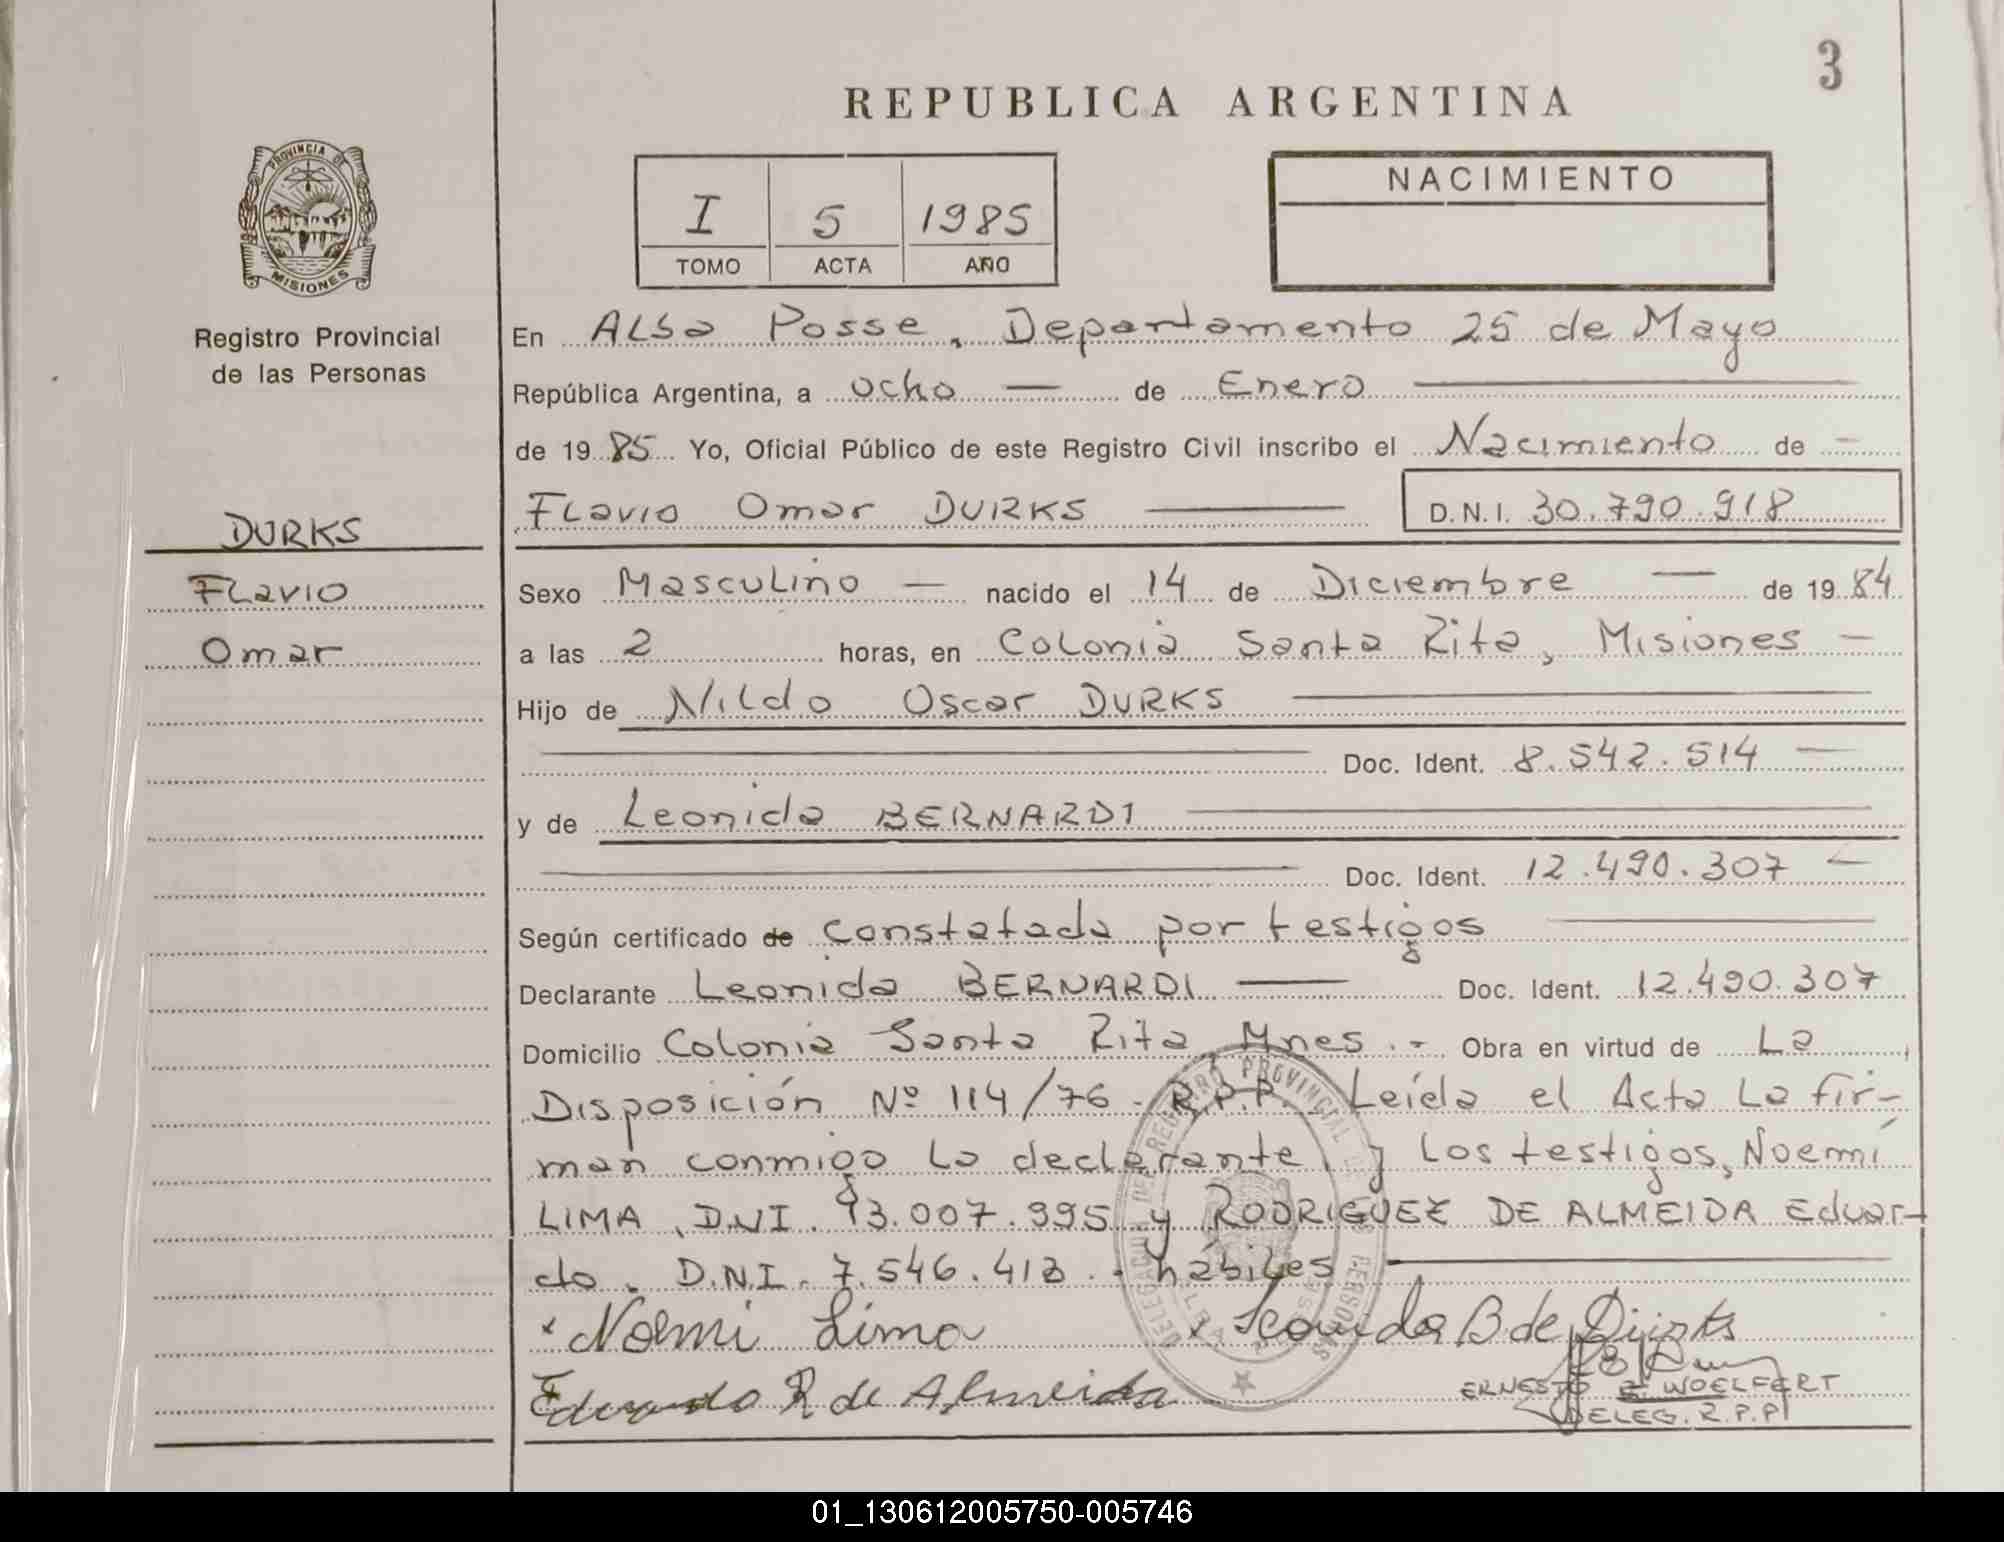 3
REPUBLICA ARGENTINA
PROVINCIA DE
MISIONES
Registro Provincial
de las Personas
I 5 1985
TOMO ACTA AÑO
NACIMIENTO
DURKS
Flavio
Omar
En Alba Posse, Departamento 25 de Mayo
República Argentina, a ocho — de Enero —
de 1985 Yo, Oficial Público de este Registro Civil inscribo el Nacimiento de —
Flavio Omar DURKS — D.N.I. 30.790.918
Sexo Masculino — nacido el 14 de Diciembre — de 1984
a las 2 horas, en Colonia Santa Rita, Misiones —
Hijo de Nildo Oscar DURKS —
— Doc. Ident. 8.542.514 —
y de Leonida BERNARDI —
— Doc. Ident. 12.490.307 —
Según certificado de constatada por testigos —
Declarante Leonida BERNARDI — Doc. Ident. 12.490.307
Domicilio Colonia Santa Rita, Mnes.- Obra en virtud de La
Disposición Nº 114/76 - R.P.P. Leída el Acta La fir-
man conmigo La declarante, y Los testigos, Noemí
LIMA, D.N.I. 93.007.995 y RODRIGUEZ DE ALMEIDA Eduar-
do. D.N.I. 7.546.413.- hábiles —
Noemi Lima
B de Durks
Eduardo R de Almeida
ERNESTO E. WOELFERT
DELEG. R.P.P.
DELEGACION DEL REGISTRO PROVINCIAL DE LAS PERSONAS
01_130612005750-005746